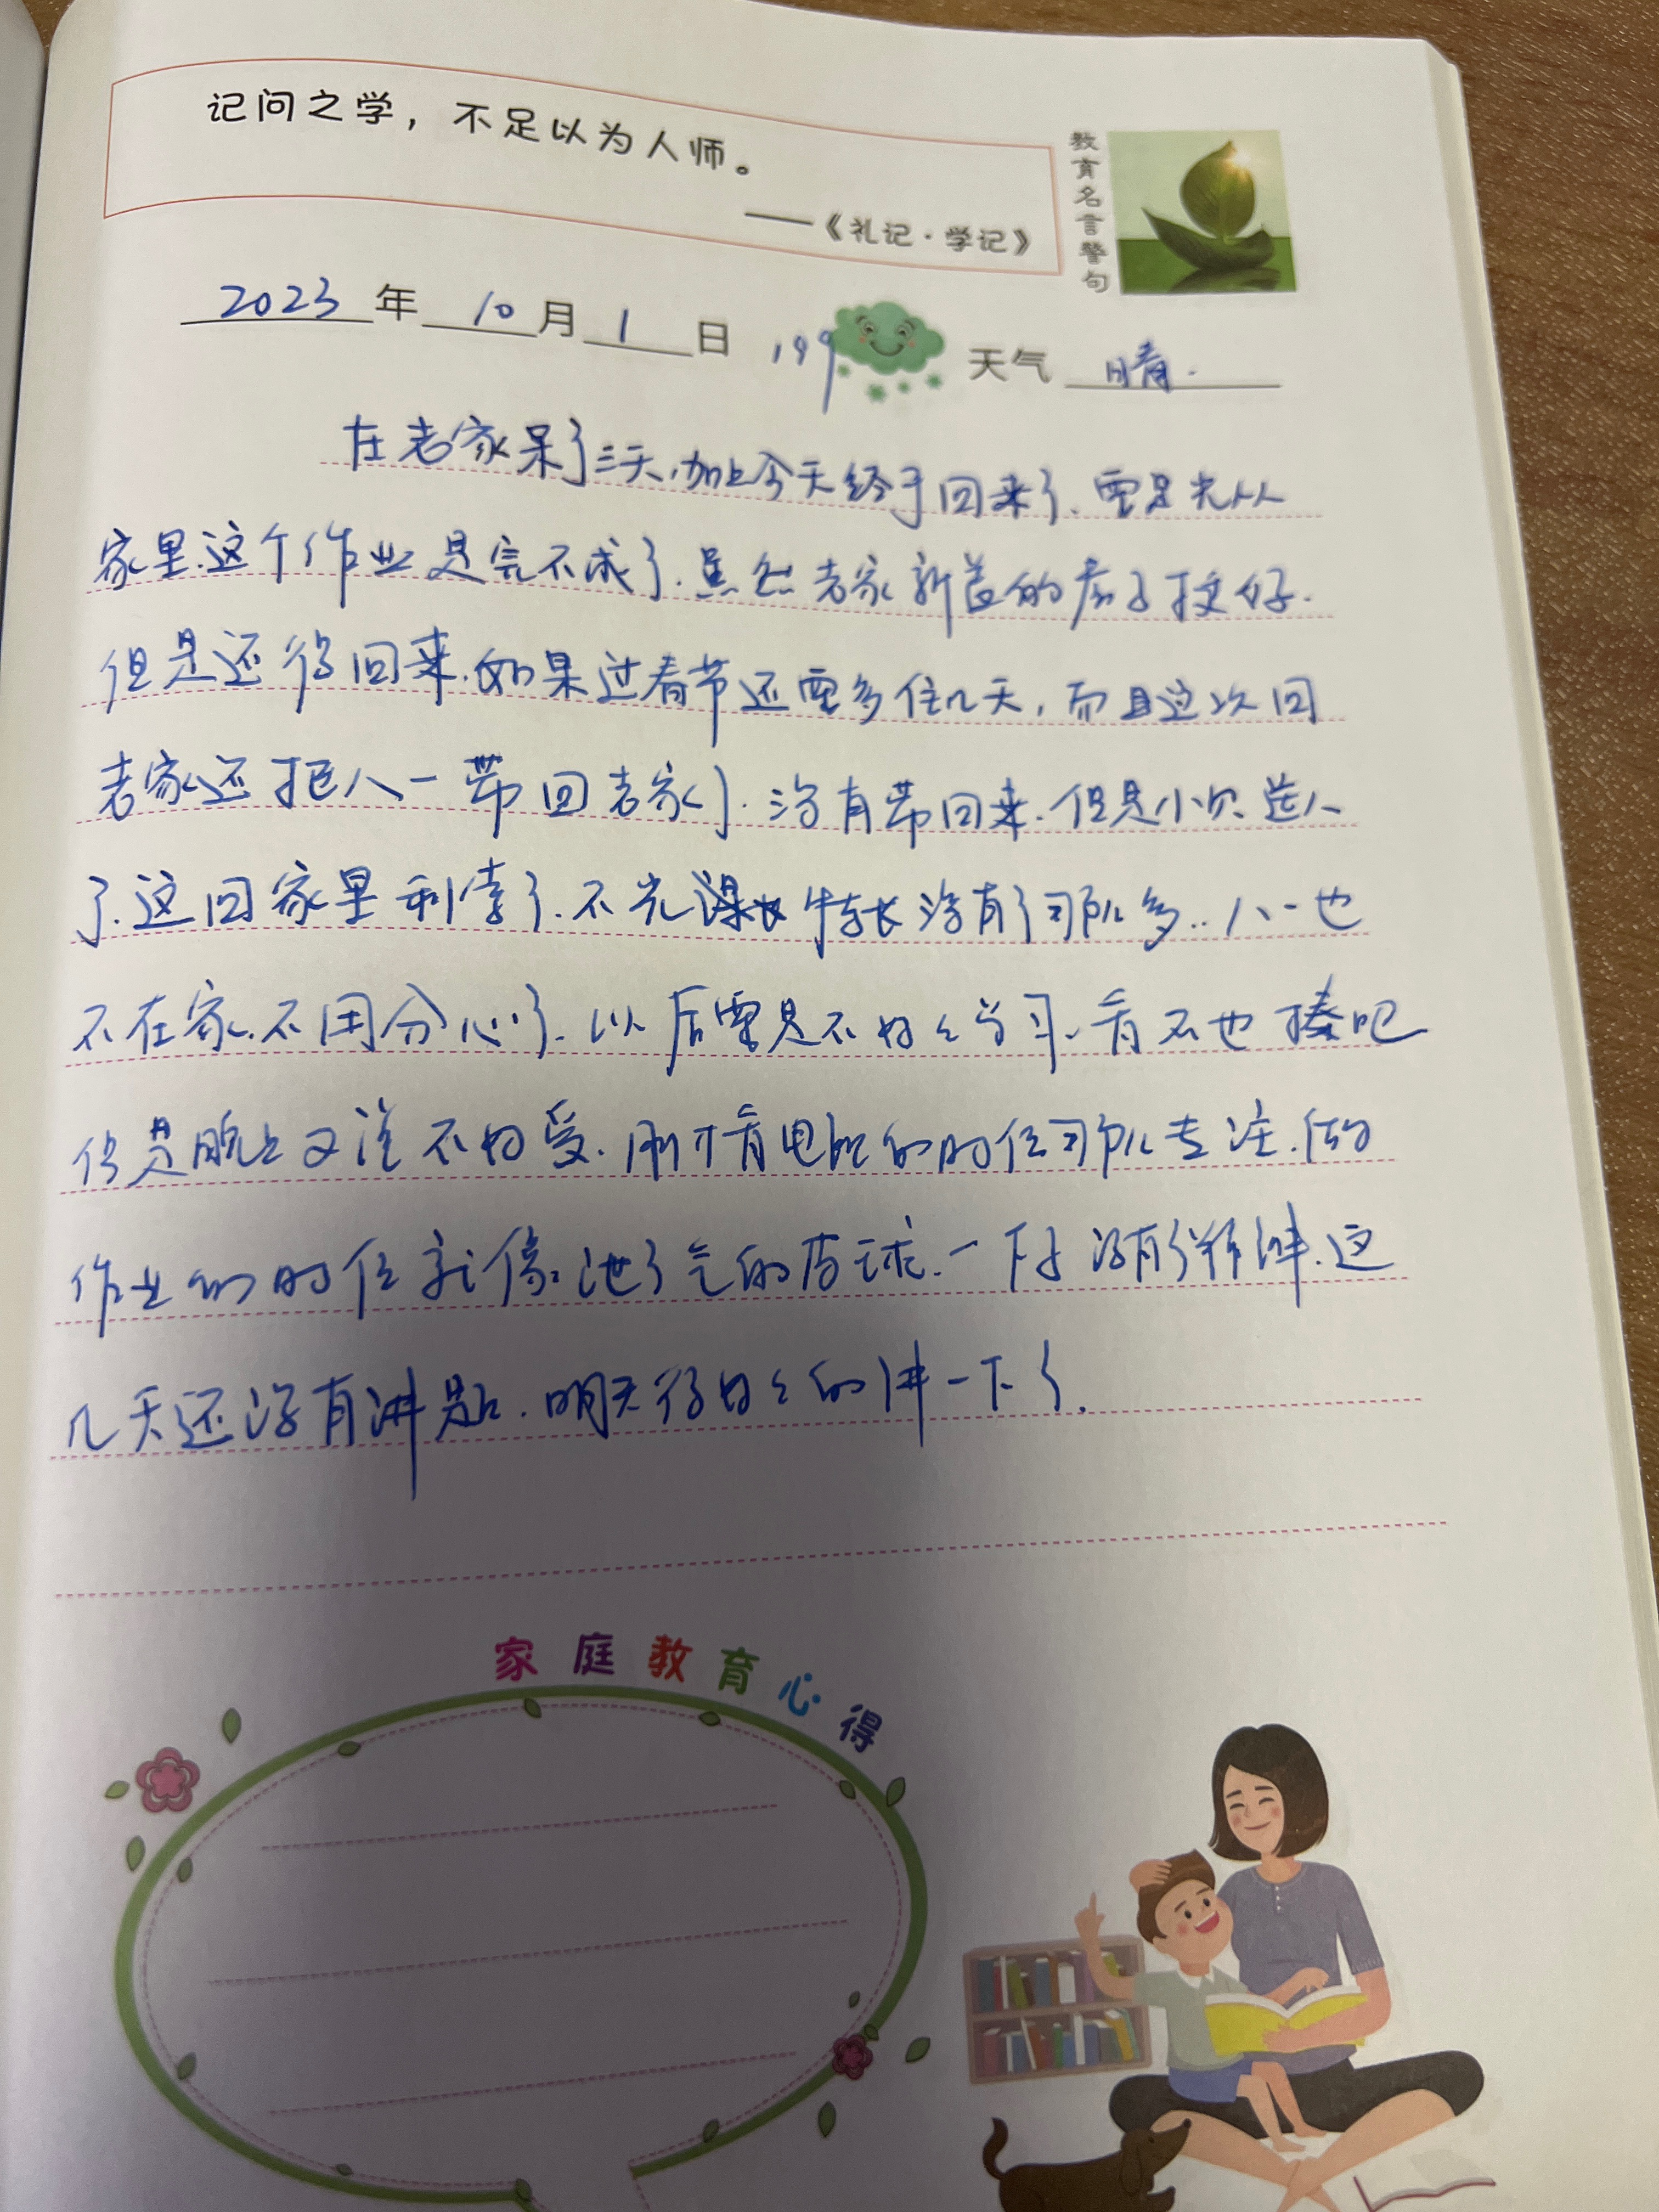 记问之学，不足以为人师。
——《礼记·学记》
教育名言警句
2023年10月1日 199 天气 晴.
在老家呆了三天,加上今天终于回来了.要是光从
家里.这个作业是完不成了.虽然老家新盖的房子挺好.
但是还得回来.如果过春节还要多住几天,而且这次回
老家还把八一带回老家了.没有带回来.但是小贝送人
了.这回家里利索了.不光 特长没有了那么多..八一也
不在家.不用分心了.以后要是不好好学习.看不也揍吧
但是脸上又说不好受.刚才看电视的时候那么专注.做
作业的时候就像泄了气的皮球.一下子没有了精神.这
几天还没有讲题.明天得好好的讲一下了.
家庭教育心得